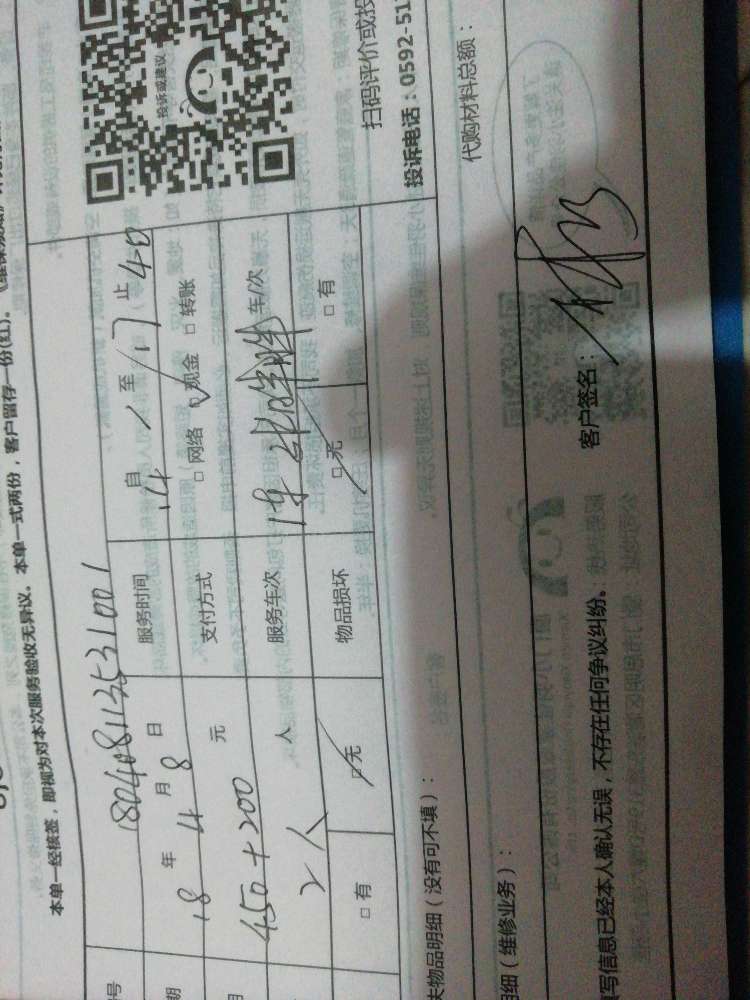 本单一经核签，即视为对本次服务验收无异议。本单一式两份，客户留存一份(红)。
号 180408113531001
期 18 年 4 月 8 日 服务时间 自 14 至 17 止 40
450+200 元 支付方式 □网络 □现金 □转账
2人 人 服务车次 车/次
□有 □无 物品损坏 □无 □有
投诉或建议
扫码评价或投
投诉电话：0592-51
失物品明细（没有可不填）：
代购材料总额：
明细（维修业务）：
填写信息已经本人确认无误，不存在任何争议纠纷。 客户签名：